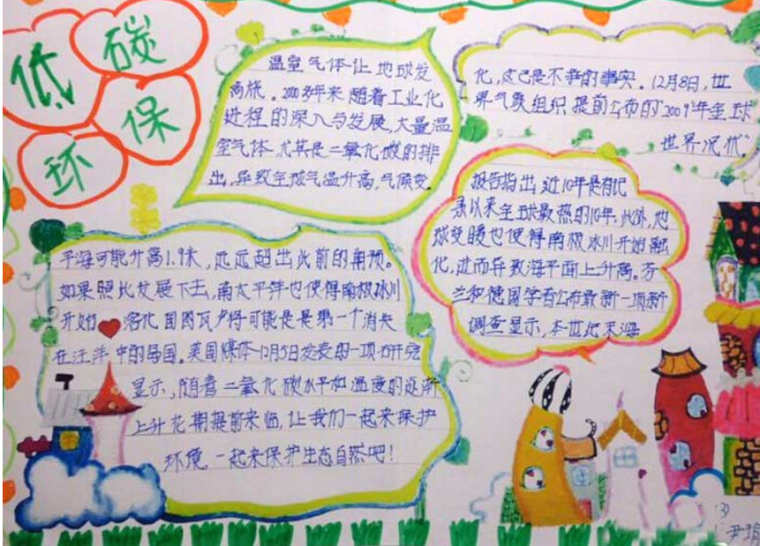 低碳
环保
温室气体让地球发
高烧。200多年来随着工业化
进程的深入与发展,大量温
室气体尤其是二氧化碳的排
出,导致全球气温升高,气候变
化,这已是不争的事实。12月8日,世
界气象组织提前公布的"2009年全球
世界况状"
报告指出,近10年是有记
录以来全球最热的10年,此外,地
球变暖也使得南极冰川开始融
化,进而导致海平面上升高。芬
兰和德国学者公布最新一项新
调查显示,本世纪末海
平海可能升高1.9米,远远超出此前的角预。
如果照此发展下去,南太平洋也使得南极冰川
开始 溶化 国图瓦卢将可能是是第一个消失
在汪洋中的岛国。英国媒体12月5日发表的一项研究
显示,随着二氧化碳水平和温度的逐渐
上升花期提前来临,让我们一起来保护
环境,一起来保护生态自然吧!